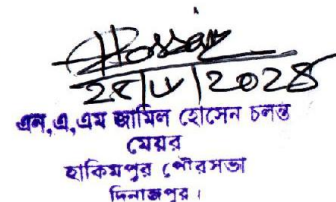 Hossain
এন,এ,এম জামিল হোসেন চলন্ত
মেয়র
হাকিমপুর পৌরসভা
দিনাজপুর।